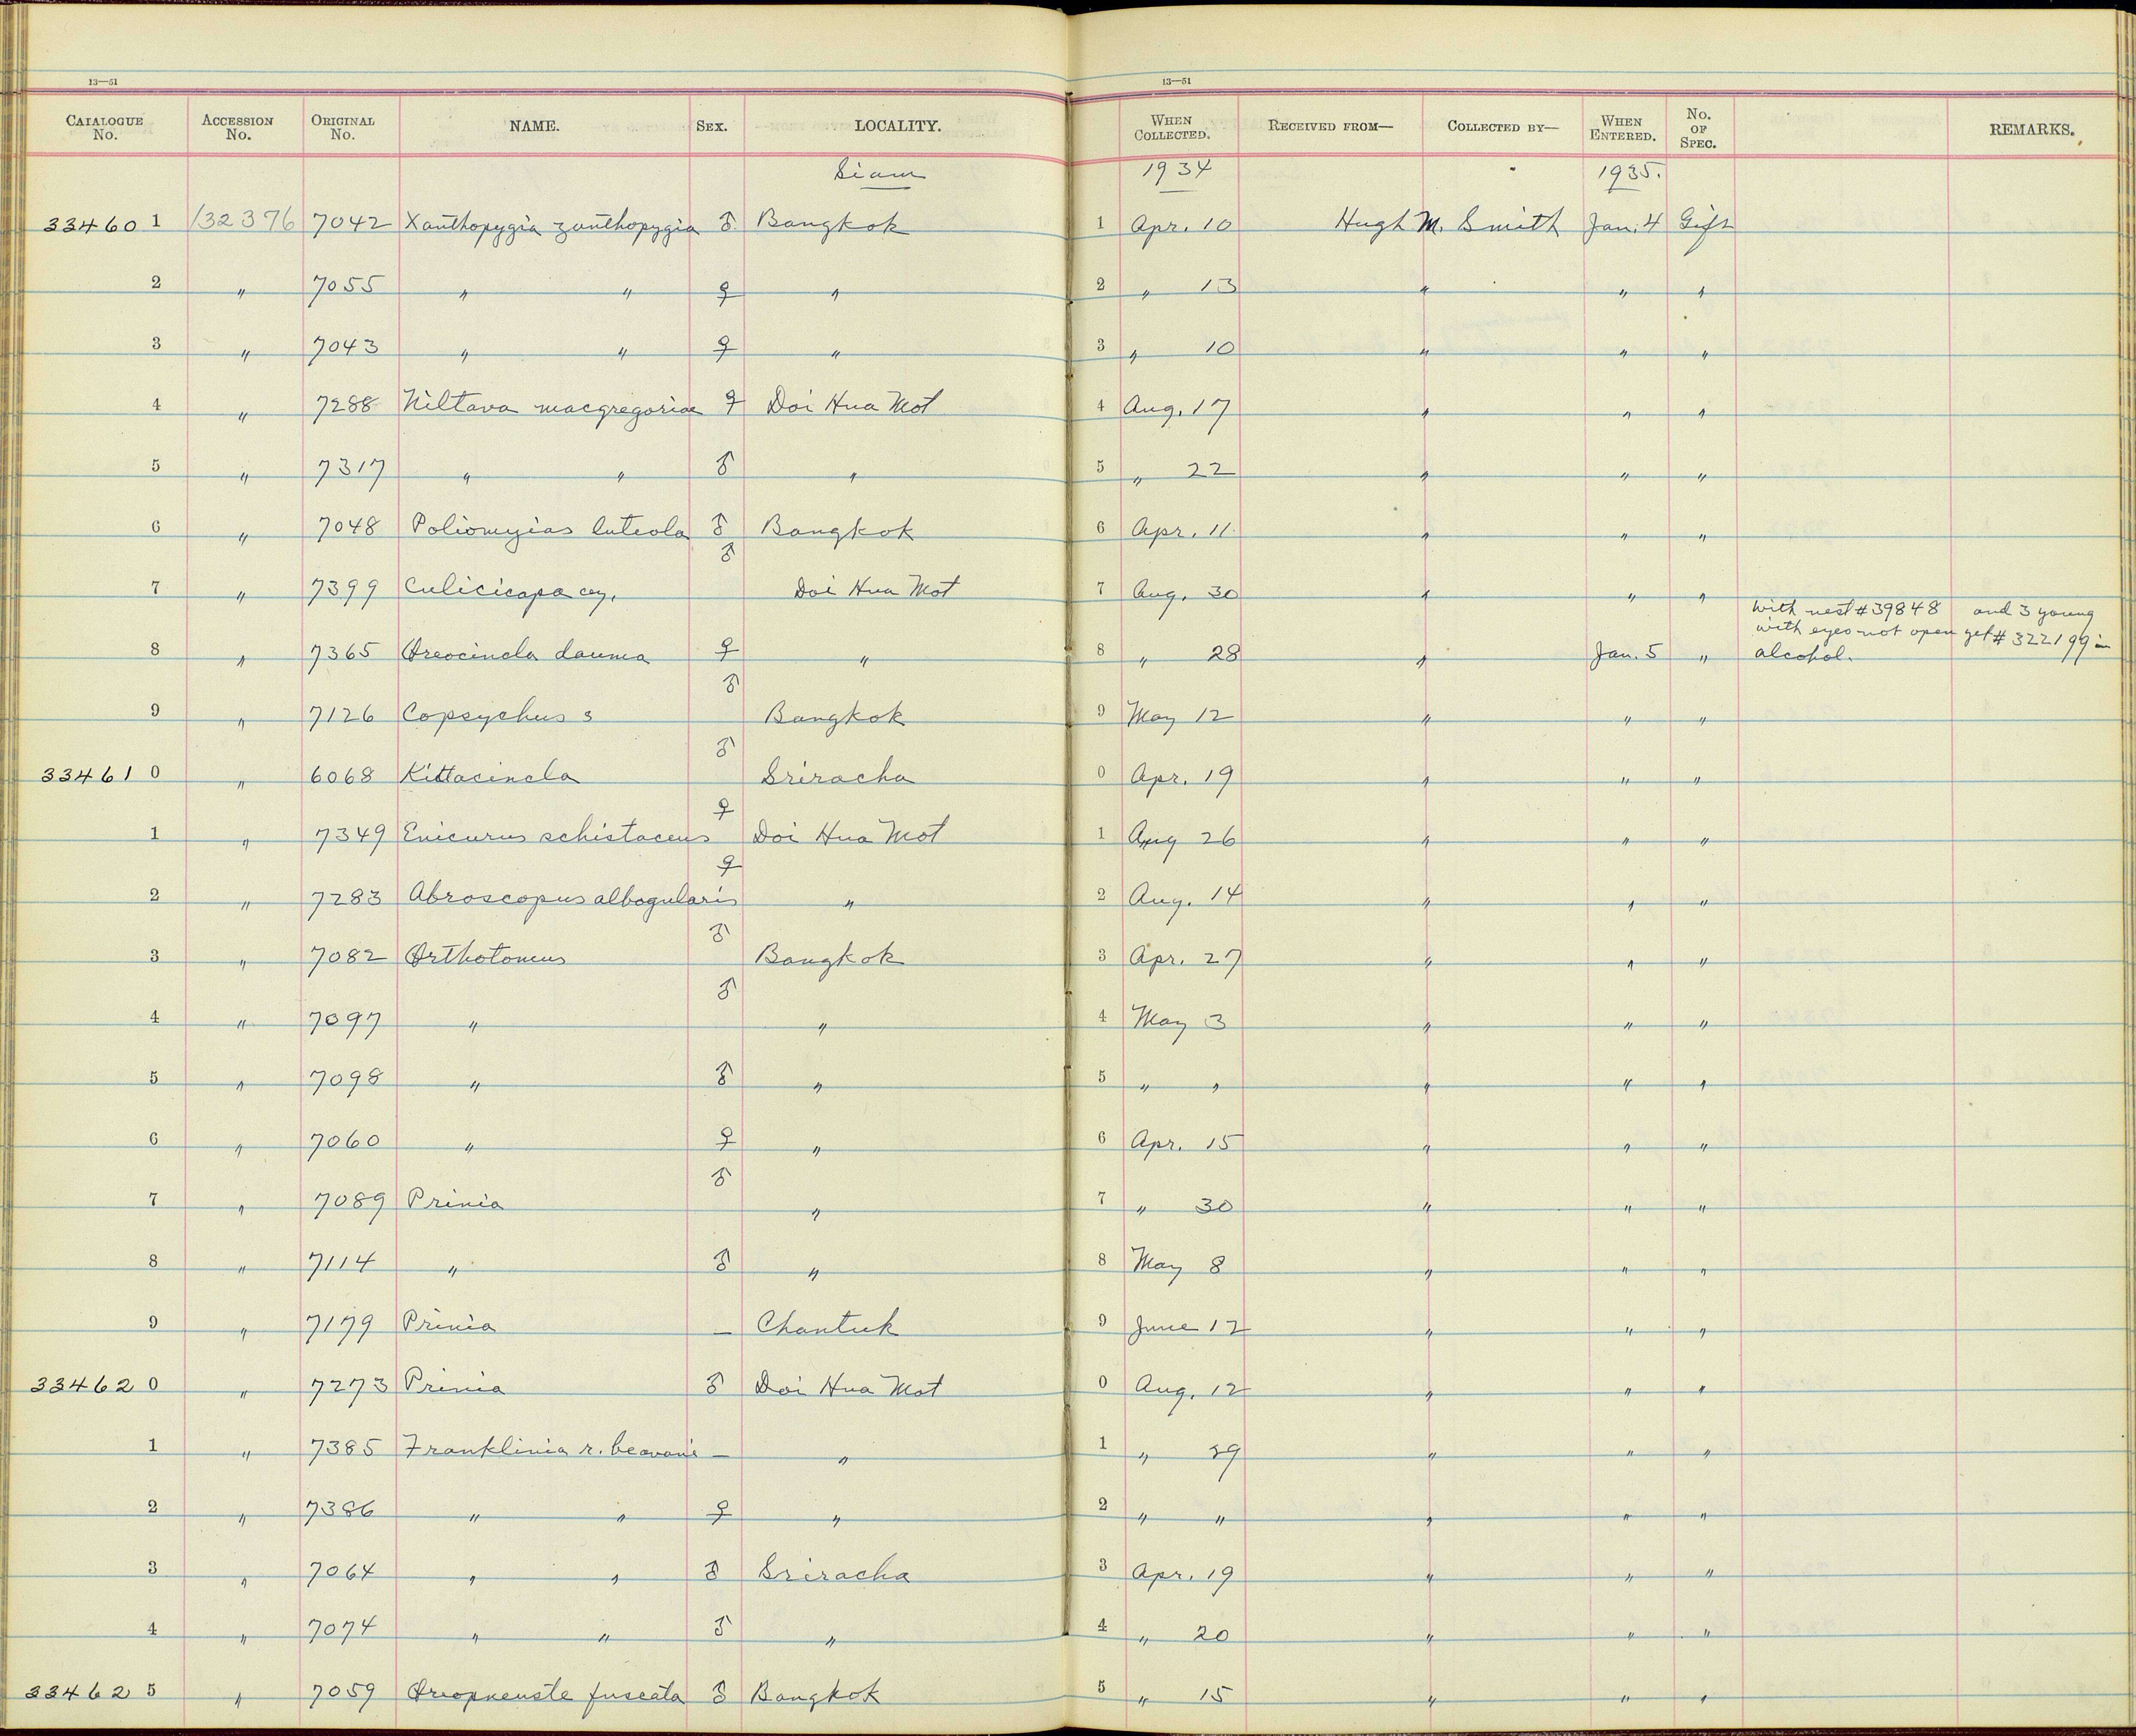 13—51 13—51
CATALOGUE No. ACCESSION No. ORIGINAL No. NAME. SEX. LOCALITY. WHEN COLLECTED. RECEIVED FROM— COLLECTED BY— WHEN ENTERED. No. OF SPEC. REMARKS.
Siam 1934 1935.
33460 1 132376 7042 Xanthopygia zanthopygia ♂ Bangkok 1 Apr. 10 Hugh M. Smith Jan. 4 Gift
2 " 7055 " " ♀ " 2 " 13 " " "
3 " 7043 " " ♀ " 3 " 10 " " "
4 " 7288 Niltava macgregoriae ♀ Doi Hua Mot 4 Aug. 17 " " "
5 " 7317 " " ♂ " 5 " 22 " " "
6 " 7048 Poliomyias luteola ♂ Bangkok 6 Apr. 11. " " "
7 " 7399 Culicicapa cey. ♂ Doi Hua Mot 7 Aug. 30 " " "
8 " 7365 Oreocincla dauma ♀ " 8 " 28 " Jan. 5 " with nest # 39848 and 3 young
with eyes not open yet # 322199 in
alcohol.
9 " 7126 Copsychus s ♂ Bangkok 9 May 12 " " "
33461 0 " 6068 Kittacincla ♂ Sriracha 0 Apr. 19 " " "
1 " 7349 Enicurus schistaceus ♀ Doi Hua Mot 1 Aug 26 " " "
2 " 7283 Abroscopus albogularis ♀ " 2 Aug. 14 " " "
3 " 7082 Orthotomus ♂ Bangkok 3 Apr. 27 " " "
4 " 7097 " ♂ " 4 May 3 " " "
5 " 7098 " ♂ " 5 " " " " "
6 " 7060 " ♀ " 6 Apr. 15 " " "
7 " 7089 Prinia ♂ " 7 " 30 " " "
8 " 7114 " ♂ " 8 May 8 " " "
9 " 7179 Prinia — Chantuk 9 June 12 " " "
33462 0 " 7273 Prinia ♂ Doi Hua Mot 0 Aug. 12 " " "
1 " 7385 Franklinia r. beavani — " 1 " " " "
2 " 7386 " " ♀ " 2 " " " " "
3 " 7064 " " ♂ Sriracha 3 Apr. 19 " " "
4 " 7074 " " ♂ " 4 " 20 " " "
33462 5 " 7059 Oreopneuste fuscata ♂ Bangkok 5 " 15 " " "